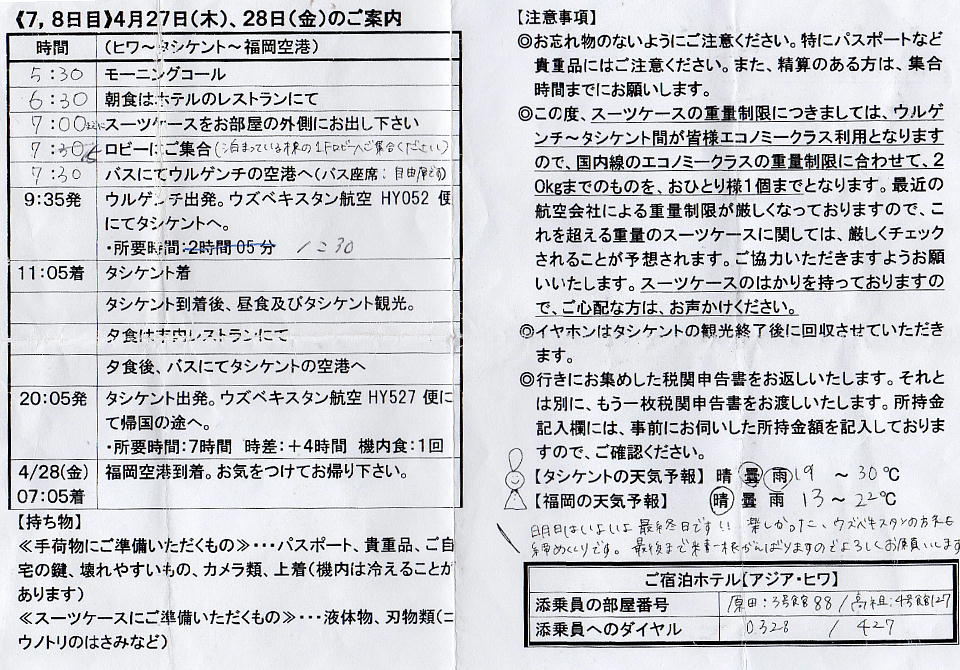 《7, 8日目》4月27日(木)、28日(金)のご案内
時間 (ヒワ～タシケント～福岡空港)
5:30 モーニングコール
6:30 朝食はホテルのレストランにて
7:00までに スーツケースをお部屋の外側にお出し下さい
7:30 ロビーにご集合(泊まっている棟の1Fロビーへご集合ください)
7:30 バスにてウルゲンチの空港へ(バス座席: 自由席です)
9:35発 ウルゲンチ出発。ウズベキスタン航空 HY052 便
にてタシケントへ。
・所要時間:2時間05分 1:30
11:05着 タシケント着
タシケント到着後、昼食及びタシケント観光。
夕食は市内レストランにて
夕食後、バスにてタシケントの空港へ
20:05発 タシケント出発。ウズベキスタン航空 HY527 便に
て帰国の途へ。
・所要時間:7時間 時差:+4時間 機内食:1回
4/28(金) 福岡空港到着。お気をつけてお帰り下さい。
07:05着
【持ち物】
≪手荷物にご準備いただくもの≫・・・パスポート、貴重品、ご自
宅の鍵、壊れやすいもの、カメラ類、上着(機内は冷えることが
あります)
≪スーツケースにご準備いただくもの≫・・・液体物、刃物類(コ
ウノトリのはさみなど)
【注意事項】
◎お忘れ物のないようにご注意ください。特にパスポートなど
貴重品にはご注意ください。また、精算のある方は、集合
時間までにお願いします。
◎この度、スーツケースの重量制限につきましては、ウルゲ
ンチ～タシケント間が皆様エコノミークラス利用となります
ので、国内線のエコノミークラスの重量制限に合わせて、2
0kgまでのものを、おひとり様1個までとなります。最近の
航空会社による重量制限が厳しくなっておりますので、こ
れを超える重量のスーツケースに関しては、厳しくチェック
されることが予想されます。ご協力いただきますようお願
いいたします。スーツケースのはかりを持っておりますの
で、ご心配な方は、お声かけください。
◎イヤホンはタシケントの観光終了後に回収させていただき
ます。
◎行きにお集めした税関申告書をお返しいたします。それと
は別に、もう一枚税関申告書をお渡しいたします。所持金
記入欄には、事前にお伺いした所持金額を記入しておりま
すので、ご確認ください。
【タシケントの天気予報】 晴 曇 雨 19 ～ 30℃
【福岡の天気予報】 晴 曇 雨 13～ 22℃
明日はいよいよ最終日です!! 楽しかった、ウズベキスタンの旅も
締めくくりです。最後まで精一杯がんばりますのでよろしくお願いします
ご宿泊ホテル【アジア・ヒワ】
添乗員の部屋番号 原田:3号館88 / 高祖:4号館127
添乗員へのダイヤル 0328 / 427